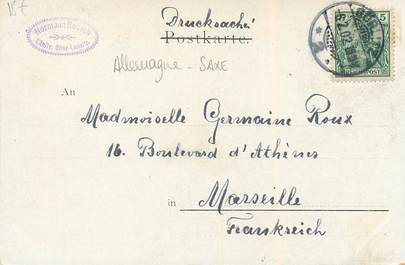 Drucksache!
Postkarte.
Allemagne - SAXE
An
Madmoiselle Germaine Roux
16. Boulevard d'Athènes
in Marseille
Frankreich
5